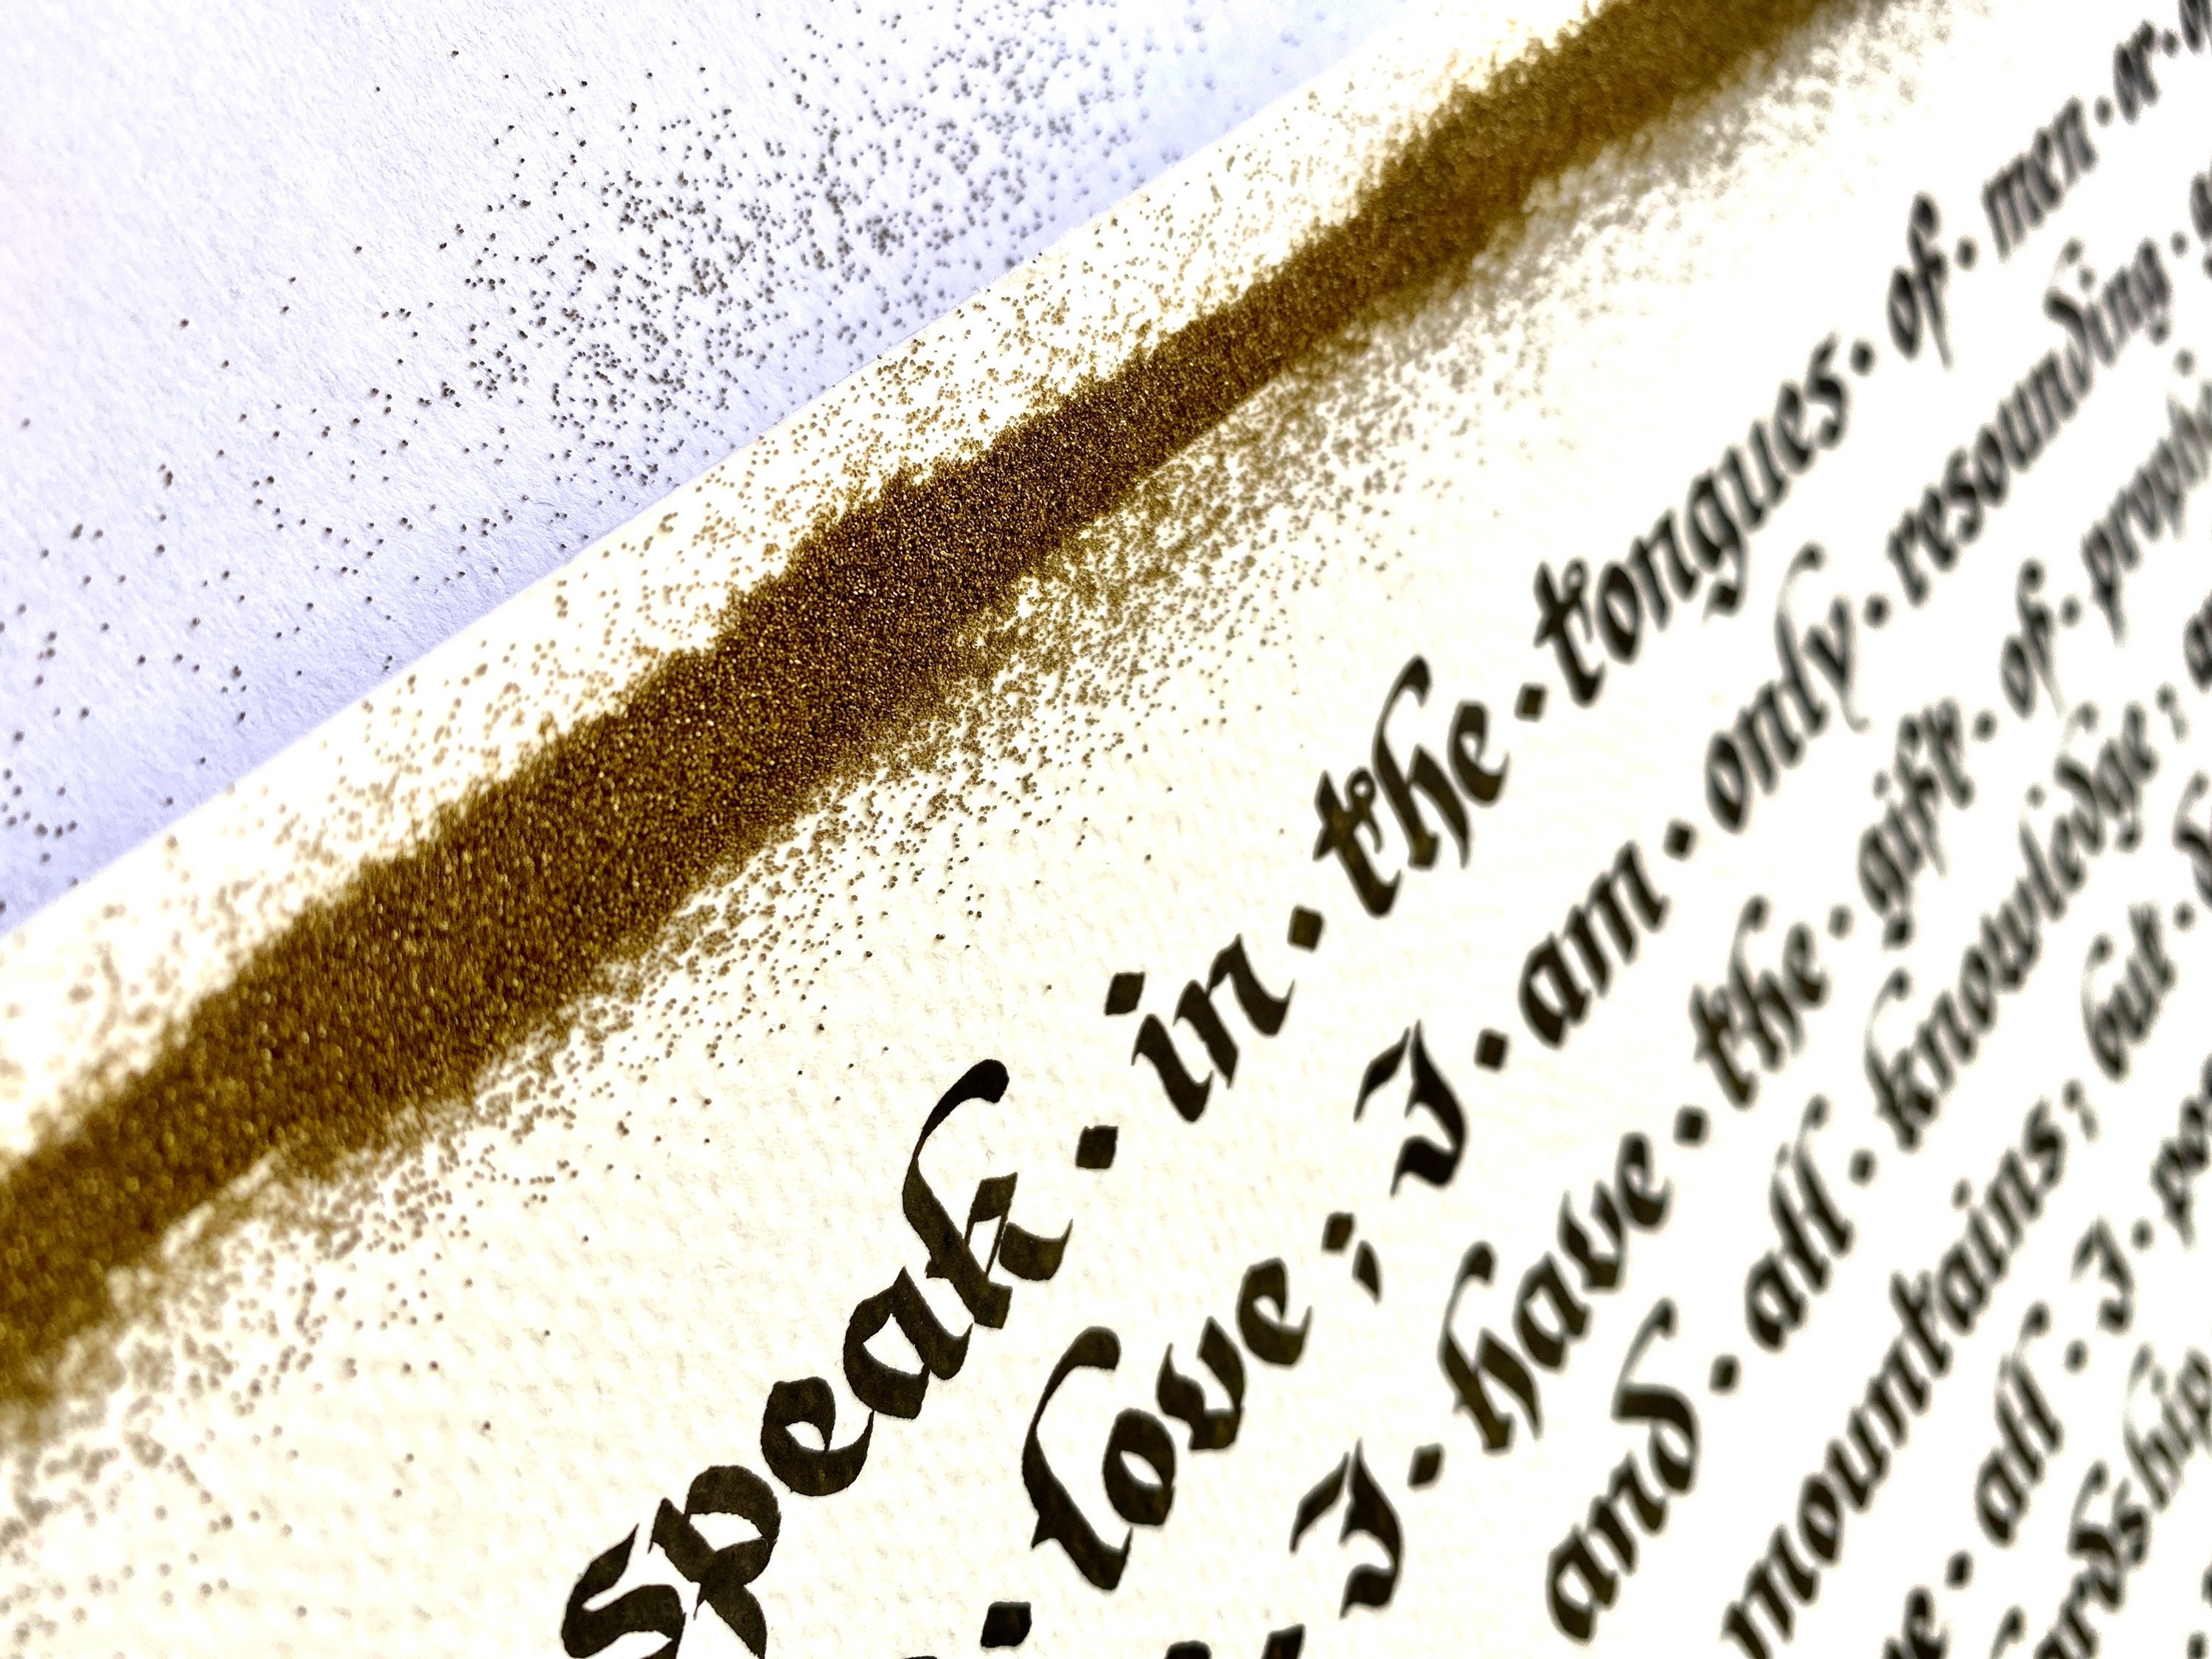 speak · in · the · tongues · of · men · or ·
· love ; I · am · only · resounding ·
I · have · the · gift · of ·
and · all · knowledge ;
mountains ; but ·
· all · I ·